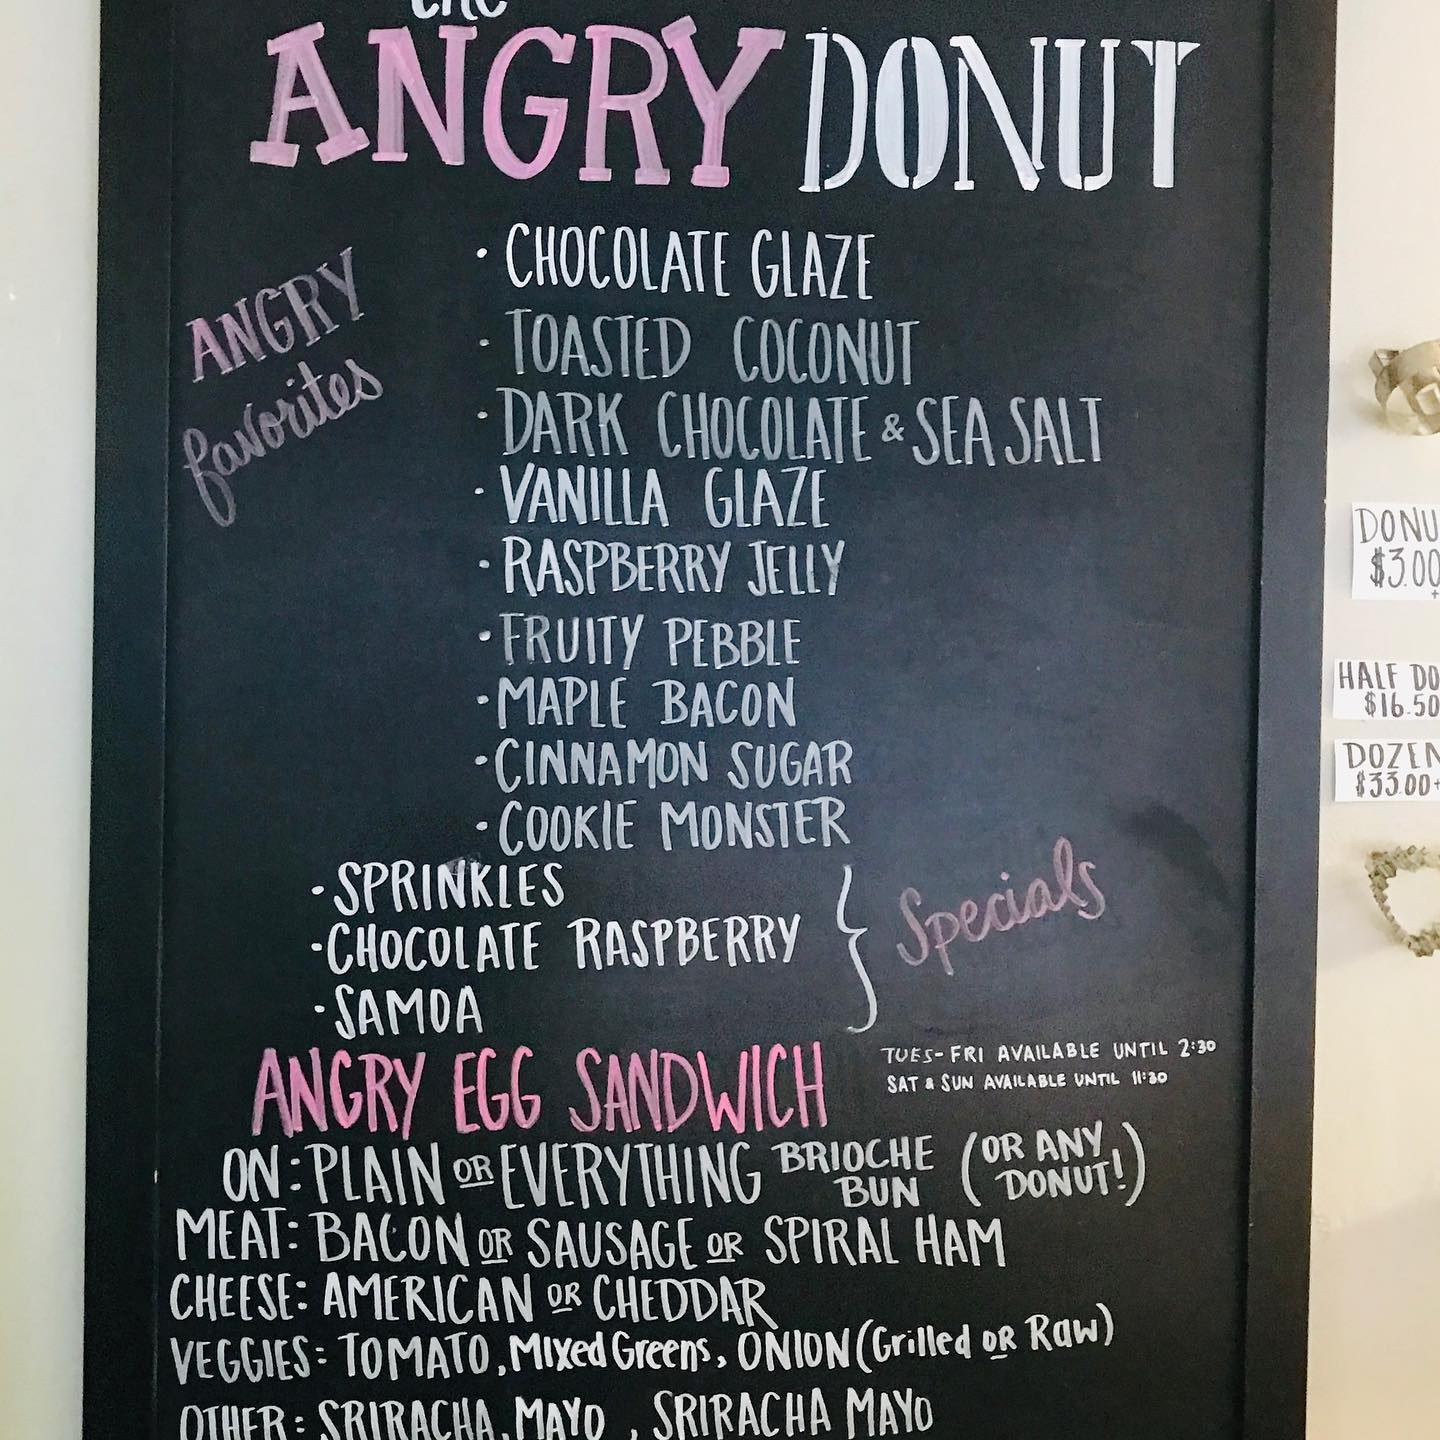 the
ANGRY DONUT
ANGRY
favorites
· CHOCOLATE GLAZE
· TOASTED COCONUT
· DARK CHOCOLATE & SEA SALT
· VANILLA GLAZE
· RASPBERRY JELLY
· FRUITY PEBBLE
· MAPLE BACON
· CINNAMON SUGAR
· COOKIE MONSTER
· SPRINKLES
· CHOCOLATE RASPBERRY
· SAMOA
Specials
ANGRY EGG SANDWICH
TUES-FRI AVAILABLE UNTIL 2:30
SAT & SUN AVAILABLE UNTIL 11:30
ON: PLAIN OR EVERYTHING BRIOCHE BUN (OR ANY DONUT!)
MEAT: BACON OR SAUSAGE OR SPIRAL HAM
CHEESE: AMERICAN OR CHEDDAR
VEGGIES: TOMATO, Mixed Greens, ONION (Grilled OR Raw)
OTHER: SRIRACHA, MAYO, SRIRACHA MAYO
DONU
$3.00
+
HALF DO
$16.50
DOZEN
$33.00+